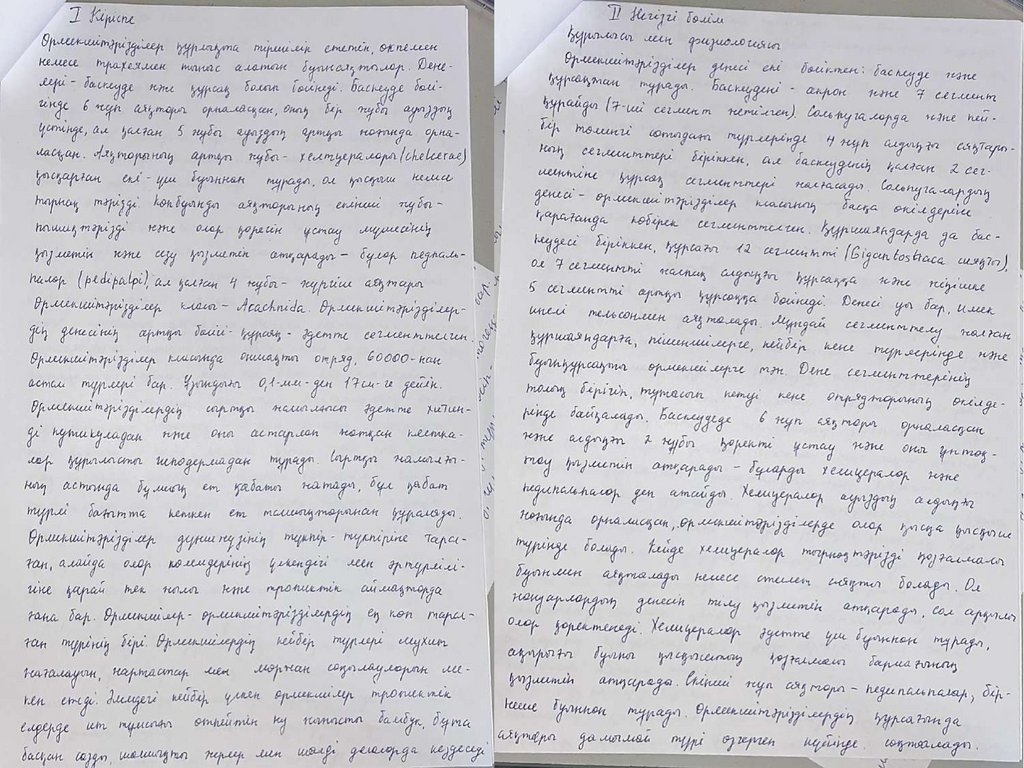 I Кіріспе
Өрмекшітәрізділер құрлықта тіршілік ететін, өкпемен
немесе трахеямен тыныс алатын буынаяқтылар. Дене-
лері - баскеуде және құрсақ болып бөлінеді. Баскеуде бөлі-
гінде 6 жұп аяқтары орналасқан, оның бір жұбы ауыздың
үстінде, ал қалған 5 жұбы ауыздың артқы жағында орна-
ласқан. Аяқтарының артқы жұбы - хелицералары (chelicerae)
қысқарған екі-үш буыннан тұрады, ол қысқыш немесе
тырнақ тәрізді. Көпбуынды аяқтарының екінші жұбы -
қармалауыш тәрізді және олар қорегін ұстау мүшесінің
қызметін және сезу қызметін атқарады - бұлар педипаль-
палар (pedipalpi), ал қалған 4 жұбы - жүргіш аяқтары
Өрмекшітәрізділер класы - Arachnida. Өрмекшітәрізділер-
дің денесінің артқы бөлігі - құрсақ - әдетте сегменттелген.
Өрмекшітәрізділер класында оншақты отряд, 60000-нан
астам түрлері бар. Ұзындығы 0,1-мм-ден 17см-ге дейін.
Өрмекшітәрізділердің сыртқы жамылғысы әдетте хитин-
ді кутикуладан және оны астарлап жатқан клетка-
лар құрылысты гиподермадан тұрады. Сыртқы жамылғы-
ның астында бұлшық ет қабаты жатады, бұл қабат
түрлі бағытта кеткен ет талшықтарынан құралады.
Өрмекшітәрізділер дүниежүзінің түкпір-түкпіріне тара-
ған, алайда олар көлемдерінің үлкендігі мен әртүрлілі-
гіне қарай тек жылы және тропиктік аймақтарда
ғана бар. Өрмекшілер - өрмекшітәрізділердің ең көп тара-
ған түрінің бірі. Өрмекшілердің кейбір түрлері мұхит
жағалауын, жартастар мен маржан саңылауларын ме-
кен етеді. Әлемдегі кейбір үлкен өрмекшілер тропиктік
елдерде ит тұмсығы өтпейтін ну қамысты бамбук, бұта
басқан сазды, шалшықты жерлер мен шөлді далаларда кездеседі
II Негізгі бөлім
Құрылысы мен физиологиясы
Өрмекшітәрізділер денесі екі бөліктен: баскеуде және
құрсақтан тұрады. Баскеудені - акрон және 7 сегмент
құрайды (7-ші сегмент жетілген). Сольпугаларда және кей-
бір төменгі сатыдағы түрлерінде 4 жұп алдыңғы аяқтары-
ның сегменттері біріккен, ал баскеуденің қалған 2 сег-
ментіне құрсақ сегменттері жалғасады. Сольпугалардың
денесі - өрмекшітәрізділер класының басқа өкілдеріне
қарағанда көбірек сегменттелген. Құршаяндарда да бас-
кеудесі біріккен, құрсағы 12 сегментті (Gigantostraca сияқты),
ол 7 сегментті жалпақ алдыңғы құрсаққа және жіңішке
5 сегментті артқы құрсаққа бөлінеді. Денесі уы бар, имек
инелі тельсонмен аяқталады. Мұндай сегменттелу жалған
құршаяндарға, пішеншілерге, кейбір кене түрлерінде және
буынқұрсақты өрмекшілерге тән. Дене сегменттерінің
толық бірігіп, тұтасып кетуі кене отрядтарының өкілде-
рінде байқалады. Баскеудеде 6 жұп аяқтары орналасқан
және алдыңғы 2 жұбы қоректі ұстау және оны ұнтақ-
тау қызметін атқарады - бұларды хелицералар және
педипальпалар деп атайды. Хелицералар ауыздың алдыңғы
жағында орналасқан, өрмекшітәрізділерде олар қысқа қысқыш
түрінде болады. Кейде хелицералар тырнақтәрізді қозғалмалы
буынмен аяқталады немесе стилет сияқты болады. Ол
жануарлардың денесін тілу қызметін атқарады, сол арқылы
олар қоректенеді. Хелицералар әдетте үш буыннан тұрады,
ақырғы буыны қысқыштың қозғалмалы бармағының
қызметін атқарады. Екінші жұп аяқтары - педипальпалар, бір-
неше буыннан тұрады. Өрмекшітәрізділердің құрсағында
аяқтары дамымай түрі өзгерген күйінде сақталады.